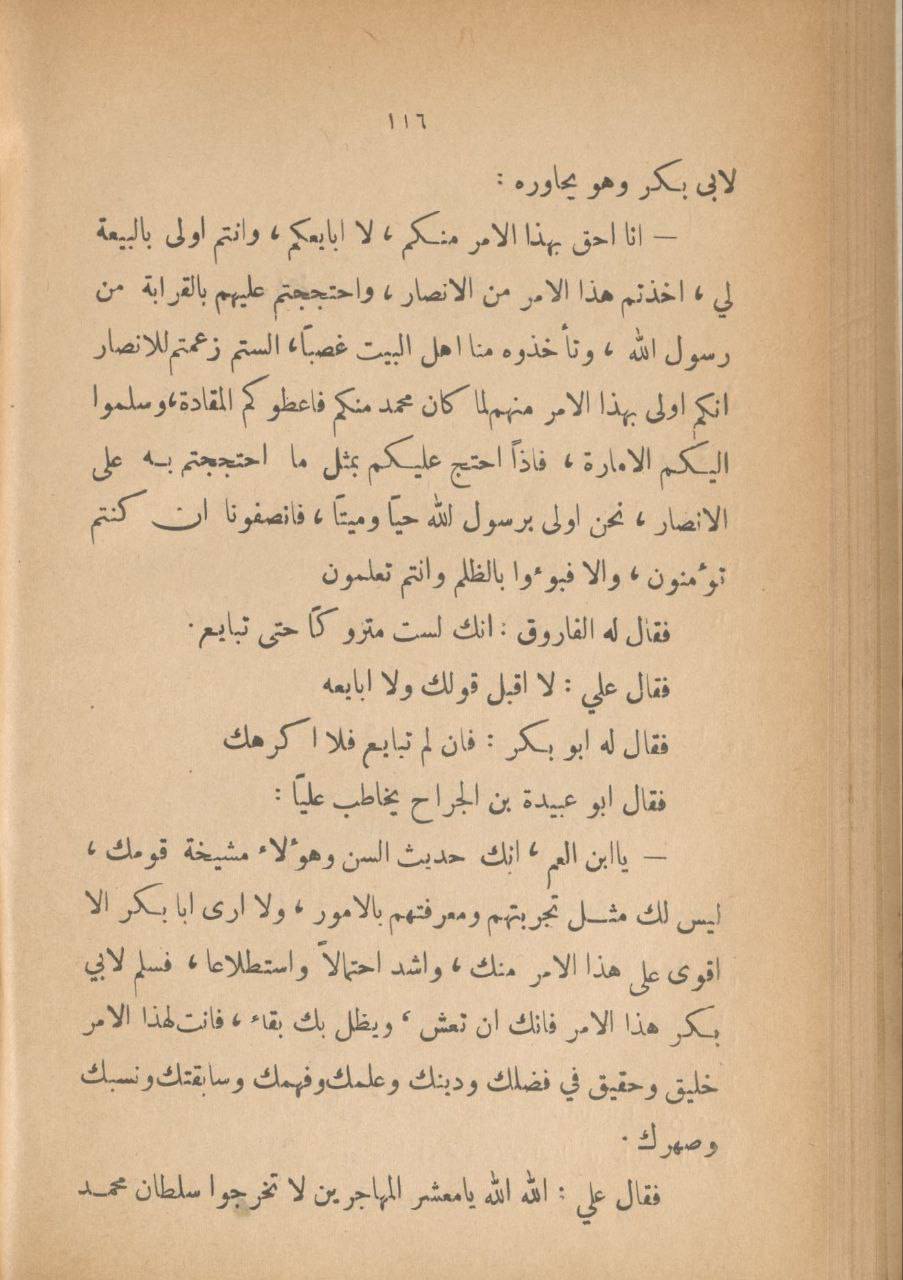 ١١٦
لابى بكر وهو يحاوره :
— انا احق بهذا الامر منكم ، لا ابايعكم ، وانتم اولى بالبيعة
لي ، اخذتم هذا الامر من الانصار ، واحتججتم عليهم بالقرابة من
رسول الله ، وتأخذوه منا اهل البيت غصبًا، الستم زعمتم للانصار
انكم اولى بهذا الامر منهم لما كان محمد منكم فاعطوكم المقادة، وسلموا
اليكم الامارة ، فاذاً احتج عليكم بمثل ما احتججتم به على
الانصار ، نحن اولى برسول الله حيًا وميتًا ، فانصفونا ان كنتم
تؤمنون ، والا فبوءوا بالظلم وانتم تعلمون
فقال له الفاروق : انك لست متروكًا حتى تبايع .
فقال علي : لا اقبل قولك ولا ابايعه
فقال له ابو بكر : فان لم تبايع فلا اكرهك
فقال ابو عبيدة بن الجراح يخاطب عليًا :
— ياابن العم ، انك حديث السن وهؤلاء مشيخة قومك ،
ليس لك مثل تجربتهم ومعرفتهم بالامور ، ولا ارى ابا بكر الا
اقوى على هذا الامر منك ، واشد احتمالاً واستطلاعا ، فسلم لابي
بكر هذا الامر فانك ان تعش ، ويظل بك بقاء ، فانت لهذا الامر
خليق وحقيق في فضلك ودينك وعلمك وفهمك وسابقتك ونسبك
وصهرك .
فقال علي : الله الله يامعشر المهاجرين لا تخرجوا سلطان محمد